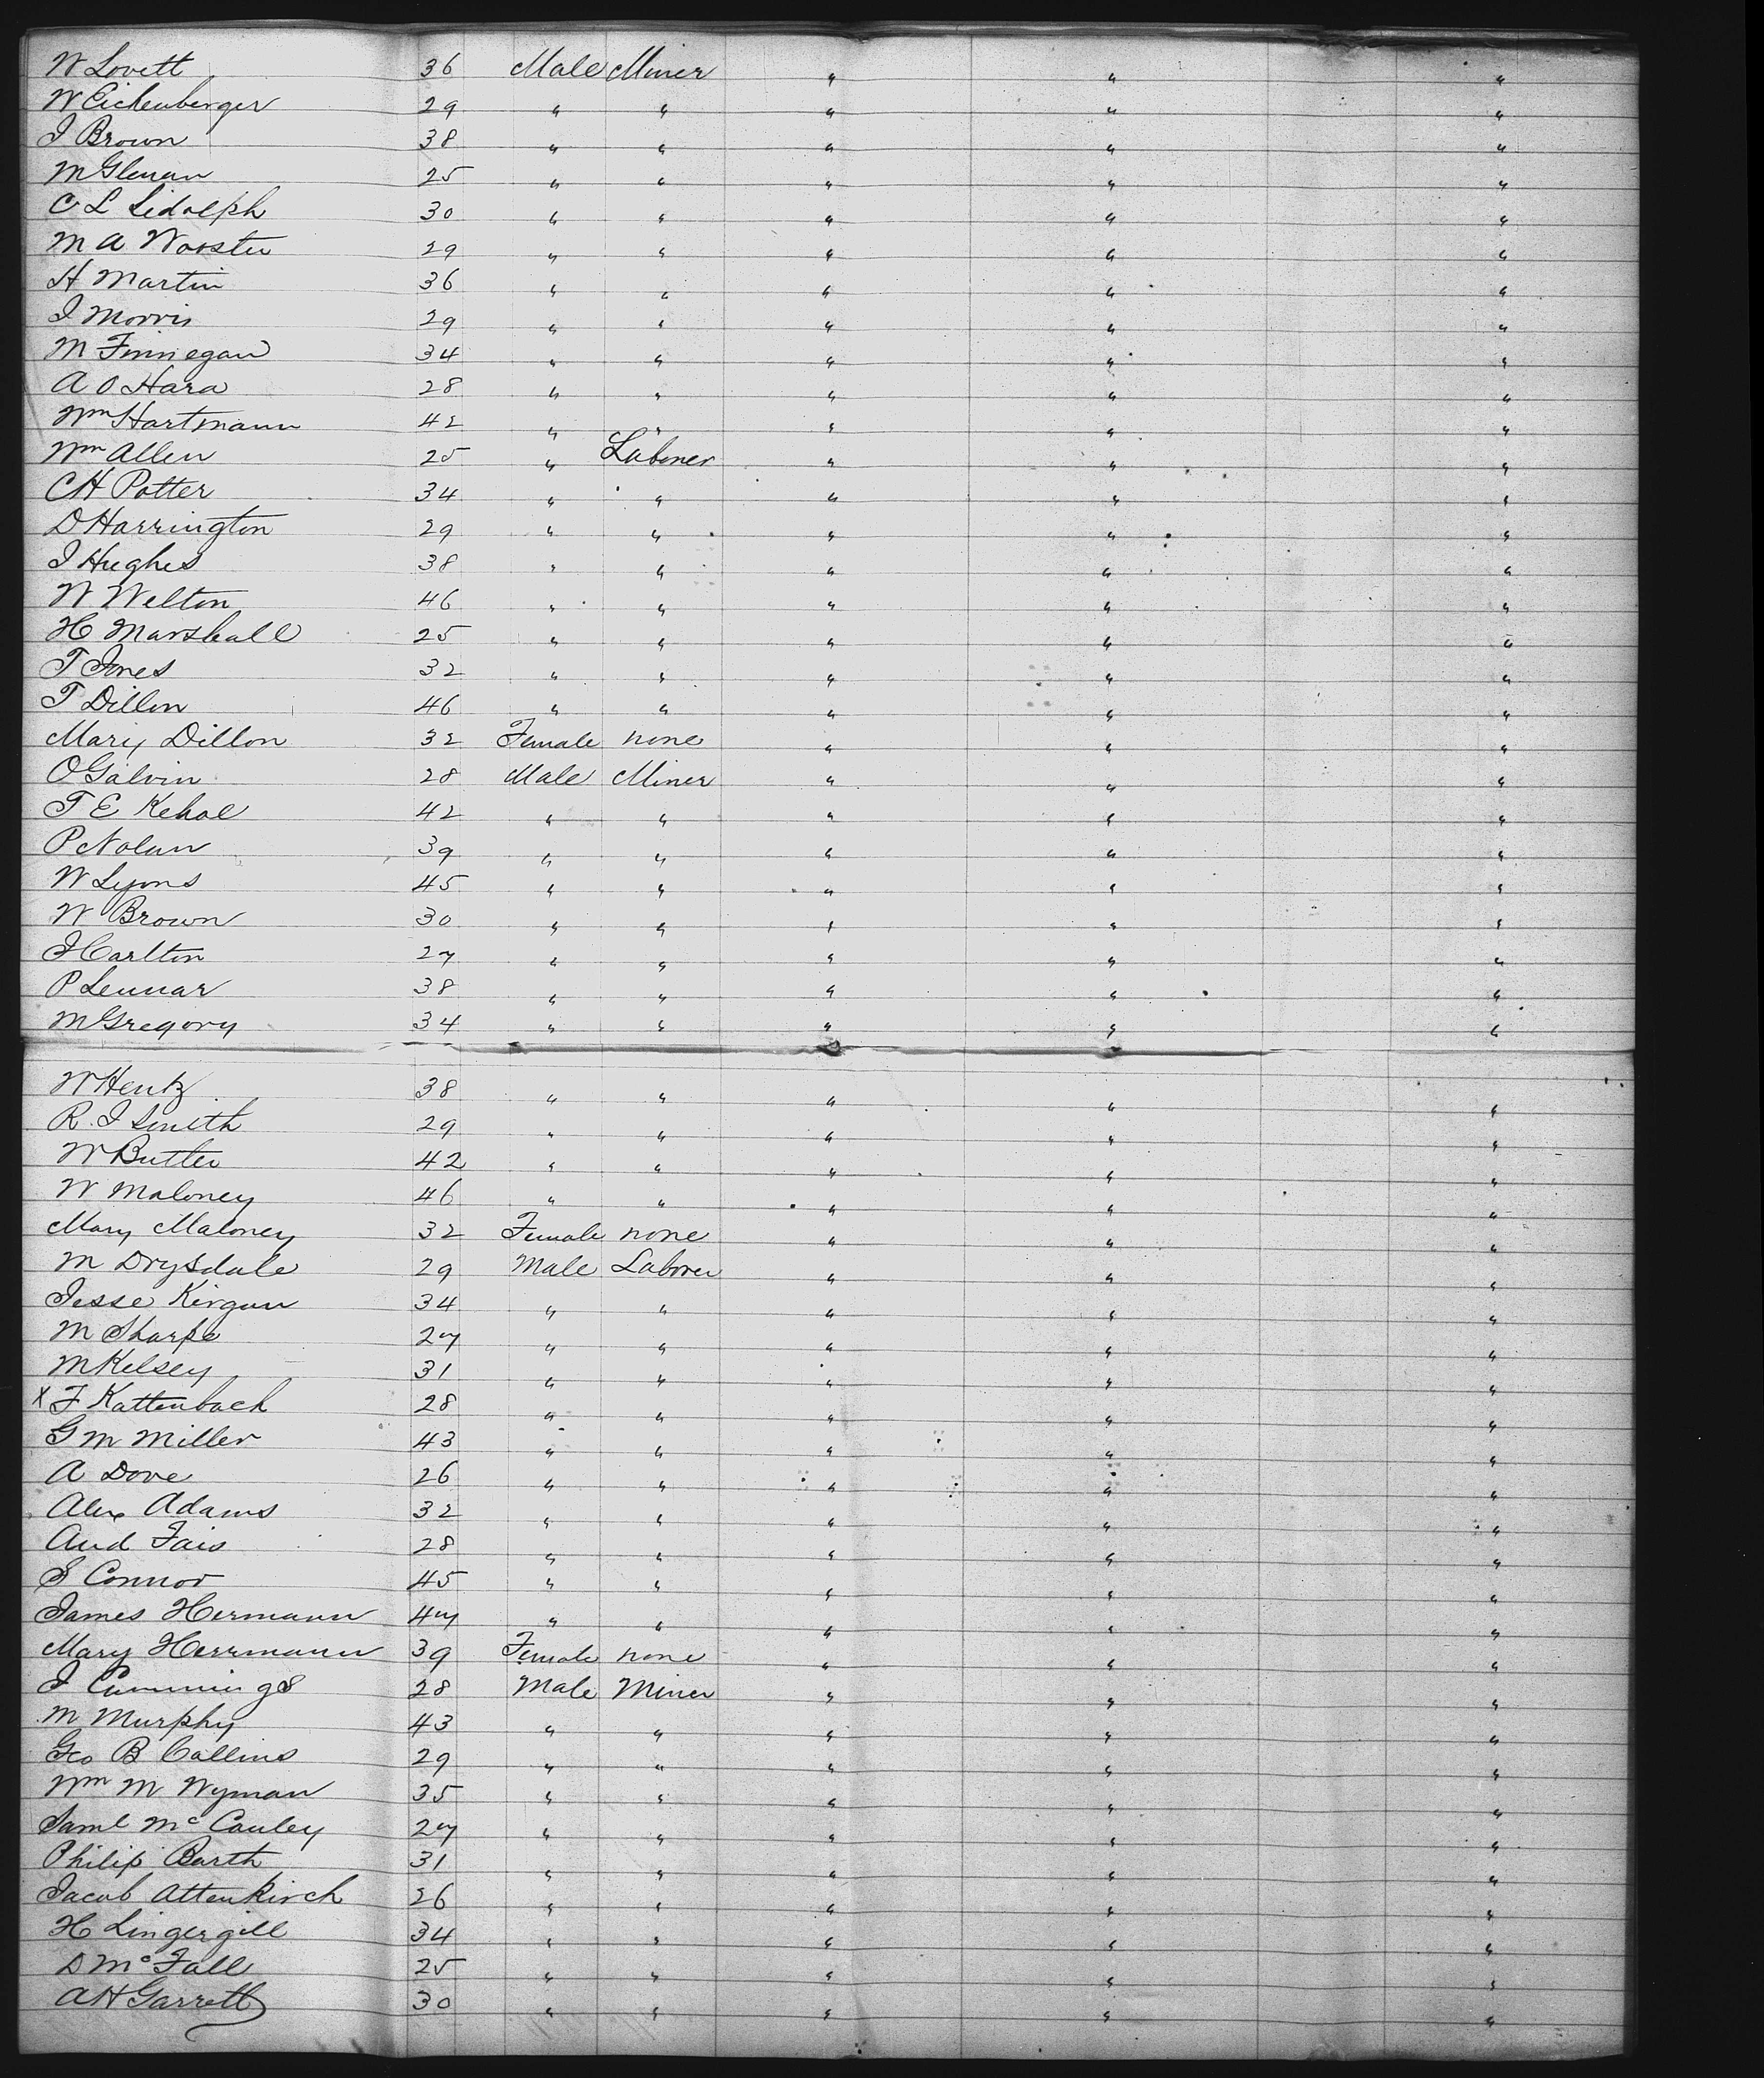 W Lovett 36 Male Miner " " "
W Eichenberger 29 " " " " "
J Brown 38 " " " " "
M Glenan 25 " " " " "
C L Lidolph 30 " " " " "
M A Wooster 29 " " " " "
H Martin 36 " " " " "
J Morris 29 " " " " "
M Finnegan 34 " " " " "
A O Hara 28 " " " " "
Wm Hartmann 42 " " " " "
Wm Allen 25 " Laborer " " "
C H Potter 34 " " " " "
D Harrington 29 " " " " "
J Hughes 38 " " " " "
W Welton 46 " " " " "
H Marshall 25 " " " " "
T Jones 32 " " " " "
T Dillon 46 " " " " "
Mary Dillon 32 Female none " " "
O Galvin 28 Male Miner " " "
T E Kehoe 42 " " " " "
P Nolan 39 " " " " "
W Lyons 45 " " " " "
W Brown 30 " " " " "
J Carlton 27 " " " " "
P Lennar 38 " " " " "
M Gregory 34 " " " " "
W Hentz 38 " " " " "
R. J Smith 29 " " " " "
W Butler 42 " " " " "
W Maloney 46 " " " " "
Mary Maloney 32 Female none " " "
M Drysdale 29 Male Laborer " " "
Jesse Kirgan 34 " " " " "
M Sharpe 27 " " " " "
M Kelsey 31 " " " " "
x F Kattenbach 28 " " " " "
G M Miller 43 " " " " "
A Dove 26 " " " " "
Alex Adams 32 " " " " "
And Fais 28 " " " " "
S Connor 45 " " " " "
James Hermann 47 " " " " "
Mary Herrmann 39 Female none " " "
J Cummings 28 Male Miner " " "
M Murphy 43 " " " " "
Geo B Collins 29 " " " " "
Wm M Wyman 35 " " " " "
Saml Mc Cauley 27 " " " " "
Philip Barth 31 " " " " "
Jacob Attenkirch 26 " " " " "
H Lingergill 34 " " " " "
D Mc Fall 25 " " " " "
A H Garrett 30 " " " " "